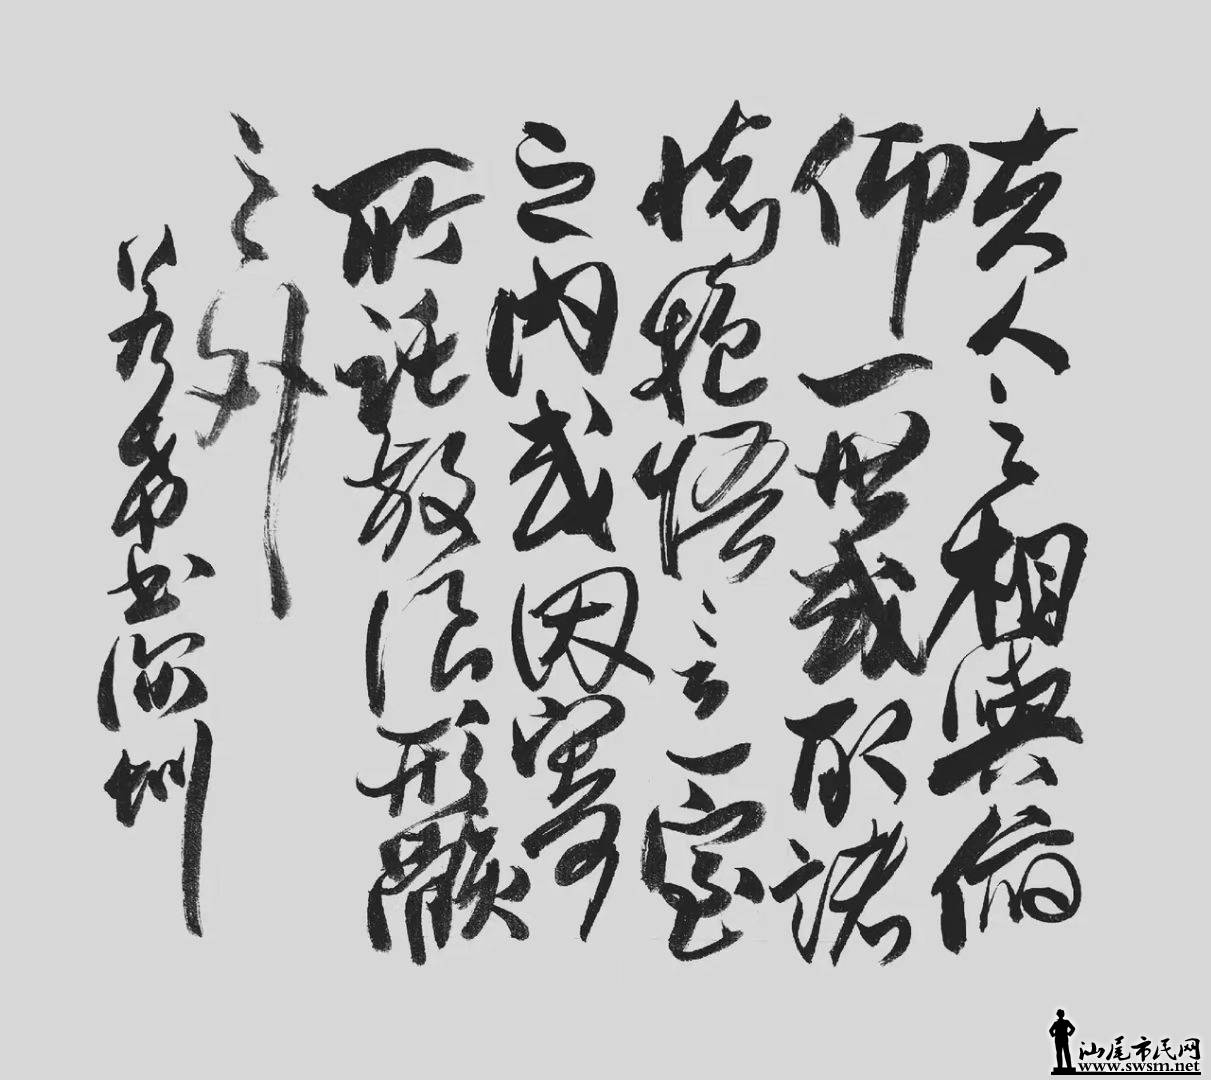 夫人之相與俯
仰一世或取諸
懷抱悟言一室
之內或因寄
所託放浪形骸
之外
書深圳
汕尾市民网
www.swsm.net